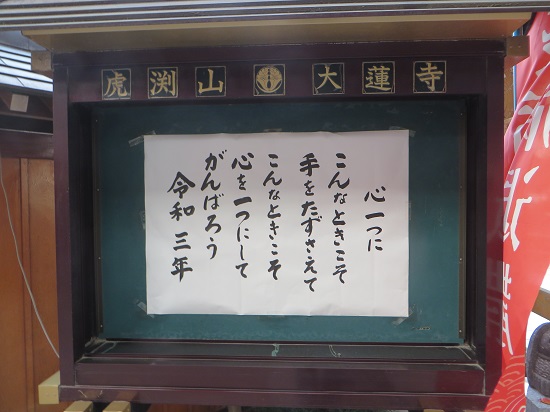 虎渕山 大蓮寺
心一つに
こんなときこそ
手をたずさえて
こんなときこそ
心を一つにして
がんばろう
令和三年